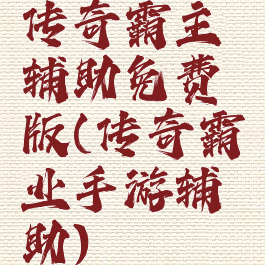 传奇霸主
辅助免费
版(传奇霸
业手游辅
助)